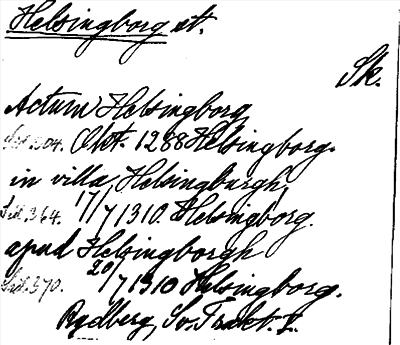 Helsingborg st.
Sk.
Actum Helsingborg
Sid. 304. Okt. 1288 Helsingborg.
in villa Helsingburgh
Sid. 364. 17/7 1310. Helsingborg.
apud Helsingborgh
Sid. 370. 20/7 1310 Helsingborg.
Rydberg, Sv. Trakt. I.